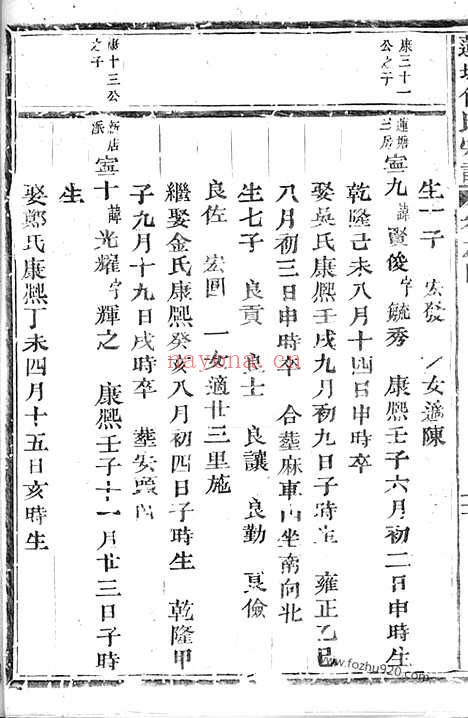 生一子 宏發 一女適陳
康三十一公之子
蓮塘三房 寧九 諱賢俊字毓秀 康熙壬子六月初二日申時生
乾隆己未八月十四日申時卒
娶吳氏康熙壬戌九月初九日子時生 雍正乙巳
八月初三日申時卒 合塟麻車山坐南向北
生七子 良貢 良士 良讓 良勤 良儉
良佐 宏圖 一女適廿三里施
繼娶金氏康熙癸亥八月初四日子時生 乾隆甲
子九月十九日戌時卒 塟安頭
康十三公之子
新店派 寧十 諱光耀字輝之 康熙壬子十一月廿三日子時
生
娶鄭氏康熙丁未四月十五日亥時生
nayona.cn
www.fozhu920.com